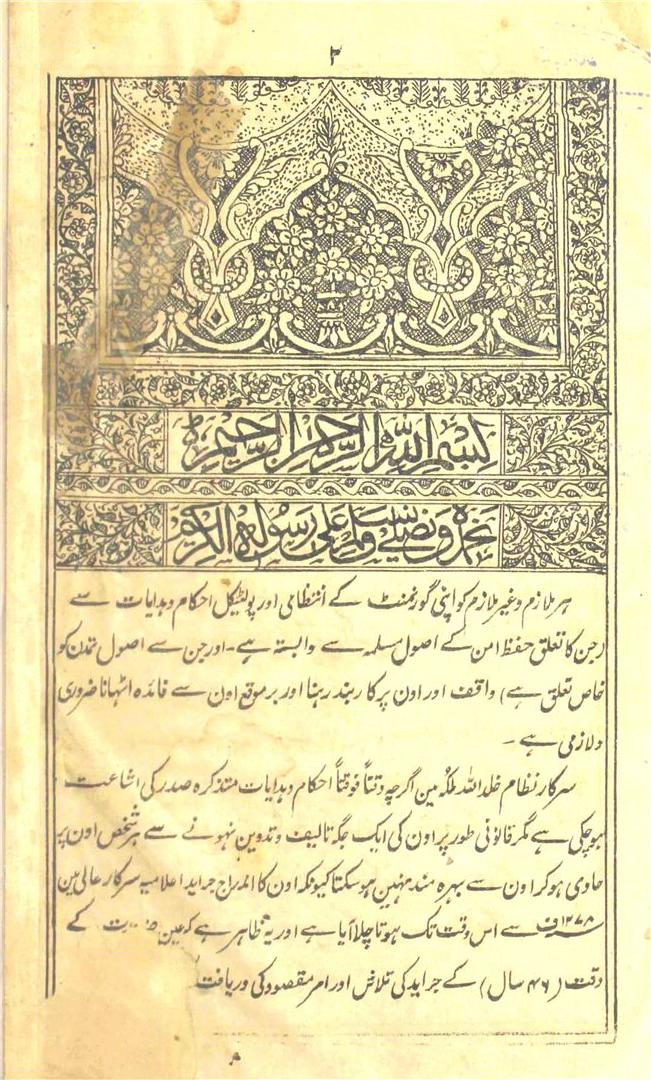 ۲
بسم اللہ الرحمن الرحیم
نحمدہ ونصلی ونسلم علی رسولہ الکریم
ہر ملازم وغیر ملازم کو اپنی گورنمنٹ کے انتظامی اور پولٹیکل احکام وہدایات سے
(جن کا تعلق حفظ امن کے اصول مسلمہ سے وابستہ ہے۔ اور جن سے اصول تمدن کو
خاص تعلق ہے) واقف اور اون پر کاربند رہنا اور برموقع اون سے فائدہ اٹہانا ضروری
ولازمی ہے۔
سرکار نظام خلد اللہ ملکہٗ مین اگرچہ وقتاً فوقتاً احکام وہدایات متذکرہ صدر کی اشاعت
ہوچکی ہے مگر قانونی طور پر اون کی ایک جگہ تالیف وتدوین نہونے سے ہر شخص اون پر
حاوی ہوکر اون سے بہرہ مند نہین ہوسکتا کیونکہ اون کا اندراج جراید اعلامیہ سرکار عالی مین
سنہ ۱۲۷۸ف سے اس وقت تک ہوتا چلا آیا ہے اور یہ ظاہر ہے کہ عین کے
وقت (۴۶ سال) کے جراید کی تلاش اور امر مقصود کی دریافت